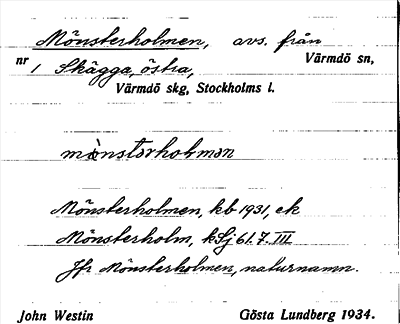 Mönsterholmen, avs. från
nr 1 Skägga, östra, Värmdö sn,
Värmdö skg, Stockholms l.
mönstərholmən
Mönsterholmen, kb 1931, ek
Mönsterholm, kSj 61.7.III
Jfr Mönsterholmen, naturnamn.
John Westin Gösta Lundberg 1934.